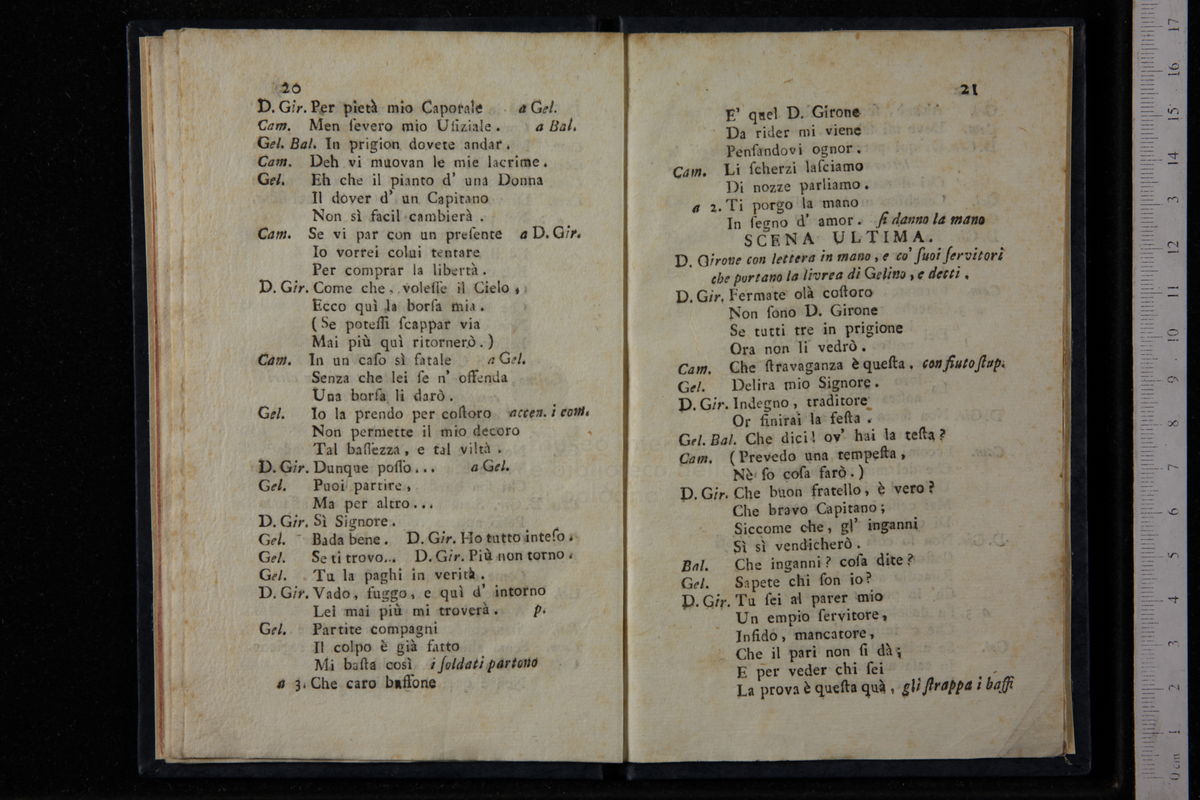 20
D. Gir. Per pietà mio Caporale a Gel.
Cam. Men ſevero mio Ufiziale. a Bal.
Gel. Bal. In prigion dovete andar.
Cam. Deh vi muovan le mie lacrime.
Gel. Eh che il pianto d' una Donna
Il dover d' un Capitano
Non sì facil cambierà.
Cam. Se vi par con un preſente a D. Gir.
Io vorrei colui tentare
Per comprar la libertà.
D. Gir. Come che, voleſſe il Cielo,
Ecco quì la borſa mia.
(Se poteſſi ſcappar via
Mai più quì ritornerò.)
Cam. In un caſo sì fatale a Gel.
Senza che lei ſe n' offenda
Una borſa li darò.
Gel. Io la prendo per coſtoro accen. i com.
Non permette il mio decoro
Tal baſſezza, e tal viltà.
D. Gir. Dunque poſſo... a Gel.
Gel. Puoi partire,
Ma per altro...
D. Gir. Sì Signore.
Gel. Bada bene. D. Gir. Ho tutto inteſo.
Gel. Se ti trovo... D. Gir. Più non torno.
Gel. Tu la paghi in verità.
D. Gir. Vado, fuggo, e quì d' intorno
Lei mai più mi troverà. p.
Gel. Partite compagni
Il colpo è già fatto
Mi baſta così i ſoldati partono
a 3. Che caro buffone
21
E' quel D. Girone
Da rider mi viene
Penſandovi ognor.
Cam. Li ſcherzi laſciamo
Di nozze parliamo.
a 2. Ti porgo la mano
In ſegno d' amor. ſi danno la mano
SCENA ULTIMA.
D. Girone con lettera in mano, e co' ſuoi ſervitori
che portano la livrea di Gelino, e detti.
D. Gir. Fermate olà coſtoro
Non ſono D. Girone
Se tutti tre in prigione
Ora non li vedrò.
Cam. Che ſtravaganza è queſta. con fiuto ſtup.
Gel. Delira mio Signore.
D. Gir. Indegno, traditore
Or finirai la feſta.
Gel. Bal. Che dici! ov' hai la teſta?
Cam. (Prevedo una tempeſta,
Nè ſo coſa farò.)
D. Gir. Che buon fratello, è vero?
Che bravo Capitano;
Siccome che, gl' inganni
Sì sì vendicherò.
Bal. Che inganni? coſa dite?
Gel. Sapete chi ſon io?
D. Gir. Tu ſei al parer mio
Un empio ſervitore,
Infido, mancatore,
Che il pari non ſi dà;
E per veder chi ſei
La prova è queſta quà, gli ſtrappa i baffi